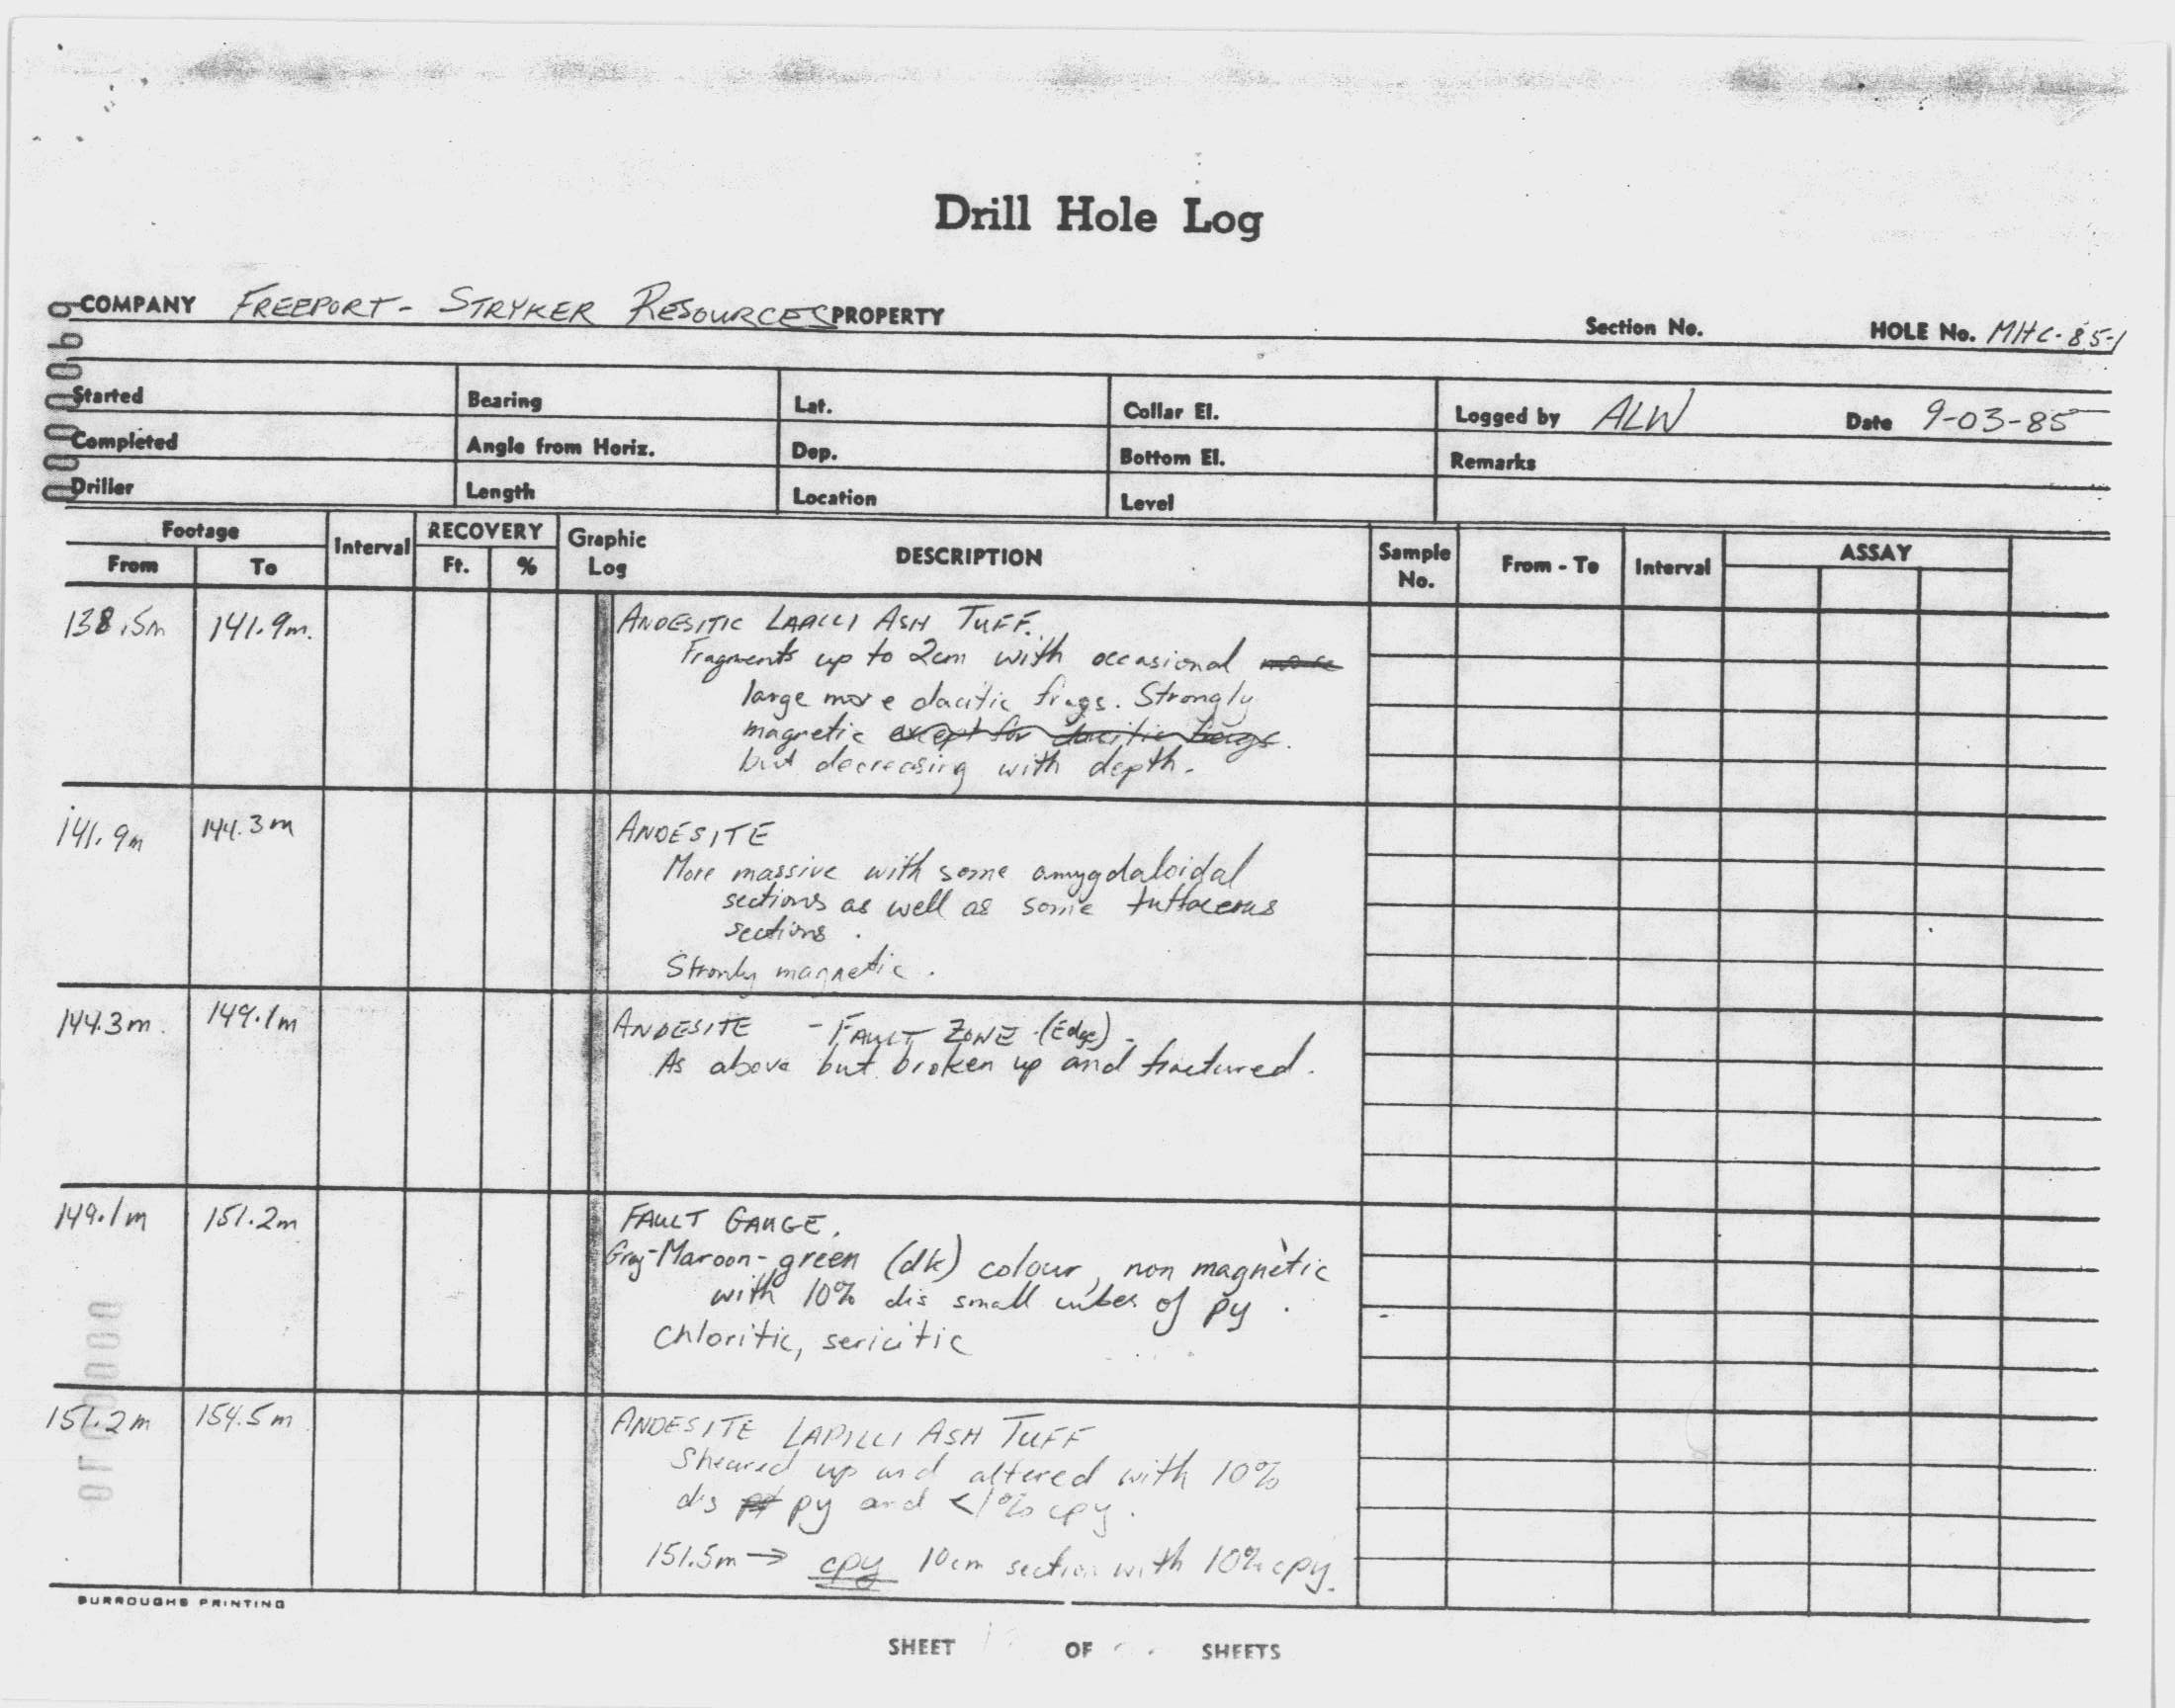 Drill Hole Log
COMPANY FREEPORT - STRYKER RESOURCES PROPERTY Section No. HOLE No. MHC-85-1
0000069
Started Bearing Lat. Collar El. Logged by ALW Date 9-03-85
Completed Angle from Horiz. Dep. Bottom El. Remarks
Driller Length Location Level
Footage Interval RECOVERY Graphic Log DESCRIPTION Sample No. From - To Interval ASSAY
From To Ft. %
138.5m 141.9m. ANDESITIC LAPILLI ASH TUFF.
Fragments up to 2cm with occasional more
large more dacitic frags. Strongly
magnetic except for dacitic frags.
but decreasing with depth.
141.9m 144.3m ANDESITE
More massive with some amygdaloidal
sections as well as some tuffaceous
sections.
Strongly magnetic.
144.3m. 149.1m ANDESITE - FAULT ZONE (Edge).
As above but broken up and fractured.
149.1m 151.2m FAULT GAUGE.
Gray-Maroon-green (dk) colour, non magnetic
with 10% dis small cubes of py.
Chloritic, sericitic
151.2m 154.5m ANDESITE LAPILLI ASH TUFF
Sheared up and altered with 10%
dis py and <1% cpy.
151.5m → cpy 10cm section with 10% cpy.
0000070
BURROUGHS PRINTING
SHEET OF SHEETS